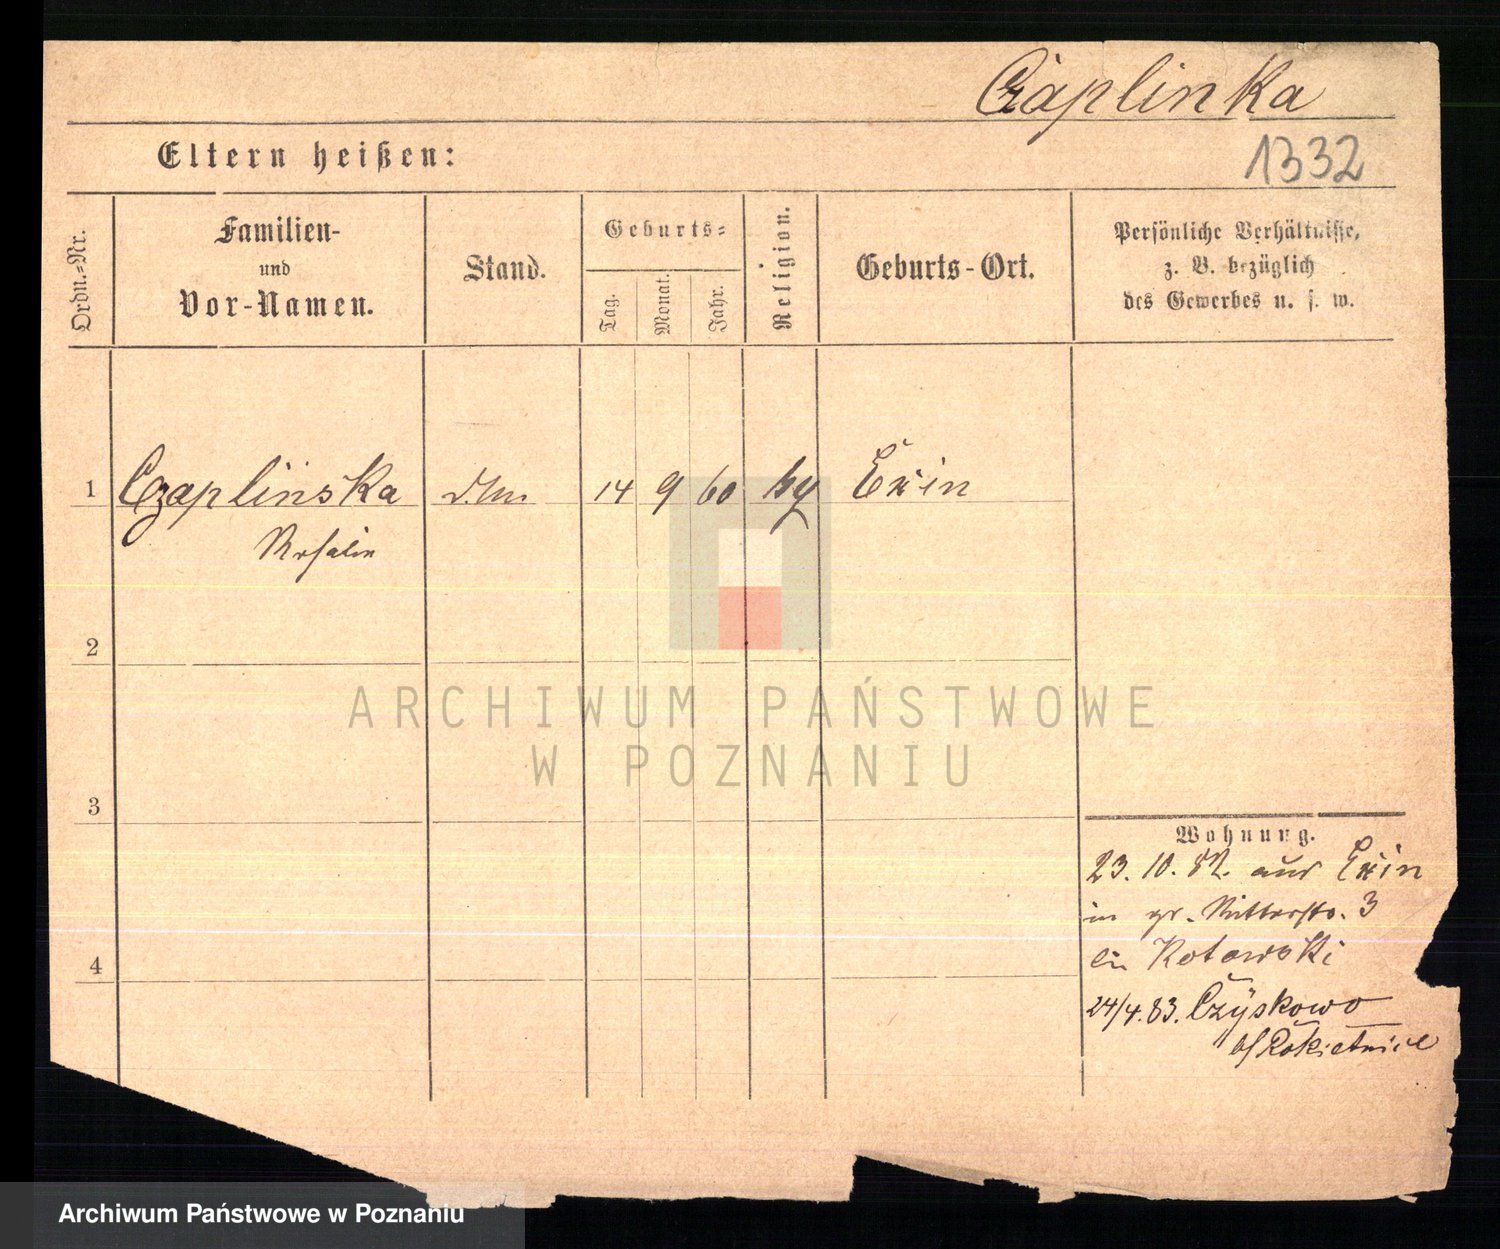 Czaplinka
Eltern heißen:
1332
Ordn.-Nr.
Familien-
und
Vor-Namen.
Stand.
Geburts-
Tag.
Monat.
Jahr.
Religion.
Geburts-Ort.
Persönliche Verhältnisse,
z. B. bezüglich
des Gewerbes u. s. w.
1 Czaplinska 14 9 60 Exin
Rosalie
2
3
4
Wohnung.
23. 10. 82. aus Exin
in gr. Ritterstr. 3
bei Kotowski
24/4. 83. Czyskowo
b/ Rokietnice
ARCHIWUM PAŃSTWOWE
W POZNANIU
Archiwum Państwowe w Poznaniu